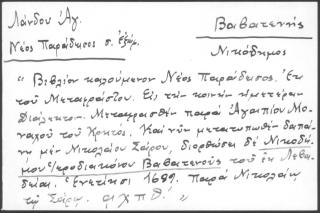 Λάνδου Ἀγ.
Βαβατενής
Νέος Παράδεισος σ. ἐξώφ.
Νικόδημος
"Βιβλίον καλούμενον Νέος Παράδεισος. Ἐκ
τοῦ Μεταφράστου. Εἰς τὴν κοινὴν ἡμετέραν
Διάλεκτον. Μεταφρασθὲν παρὰ Ἀγαπίου Μο-
ναχοῦ τοῦ Κρητός. Καὶ νῦν μετατυπωθὲν δαπά-
νῃ μὲν Νικολάου Σάρου, διορθώσει δὲ Νικοδή-
μου ἱεροδιακόνου Βαβατενοῦς τοῦ ἐκ Λεβα-
δείας. Ἐνετίησι 1689. Παρὰ Νικολάῳ
τῷ Σάρῳ. αχπθ'."